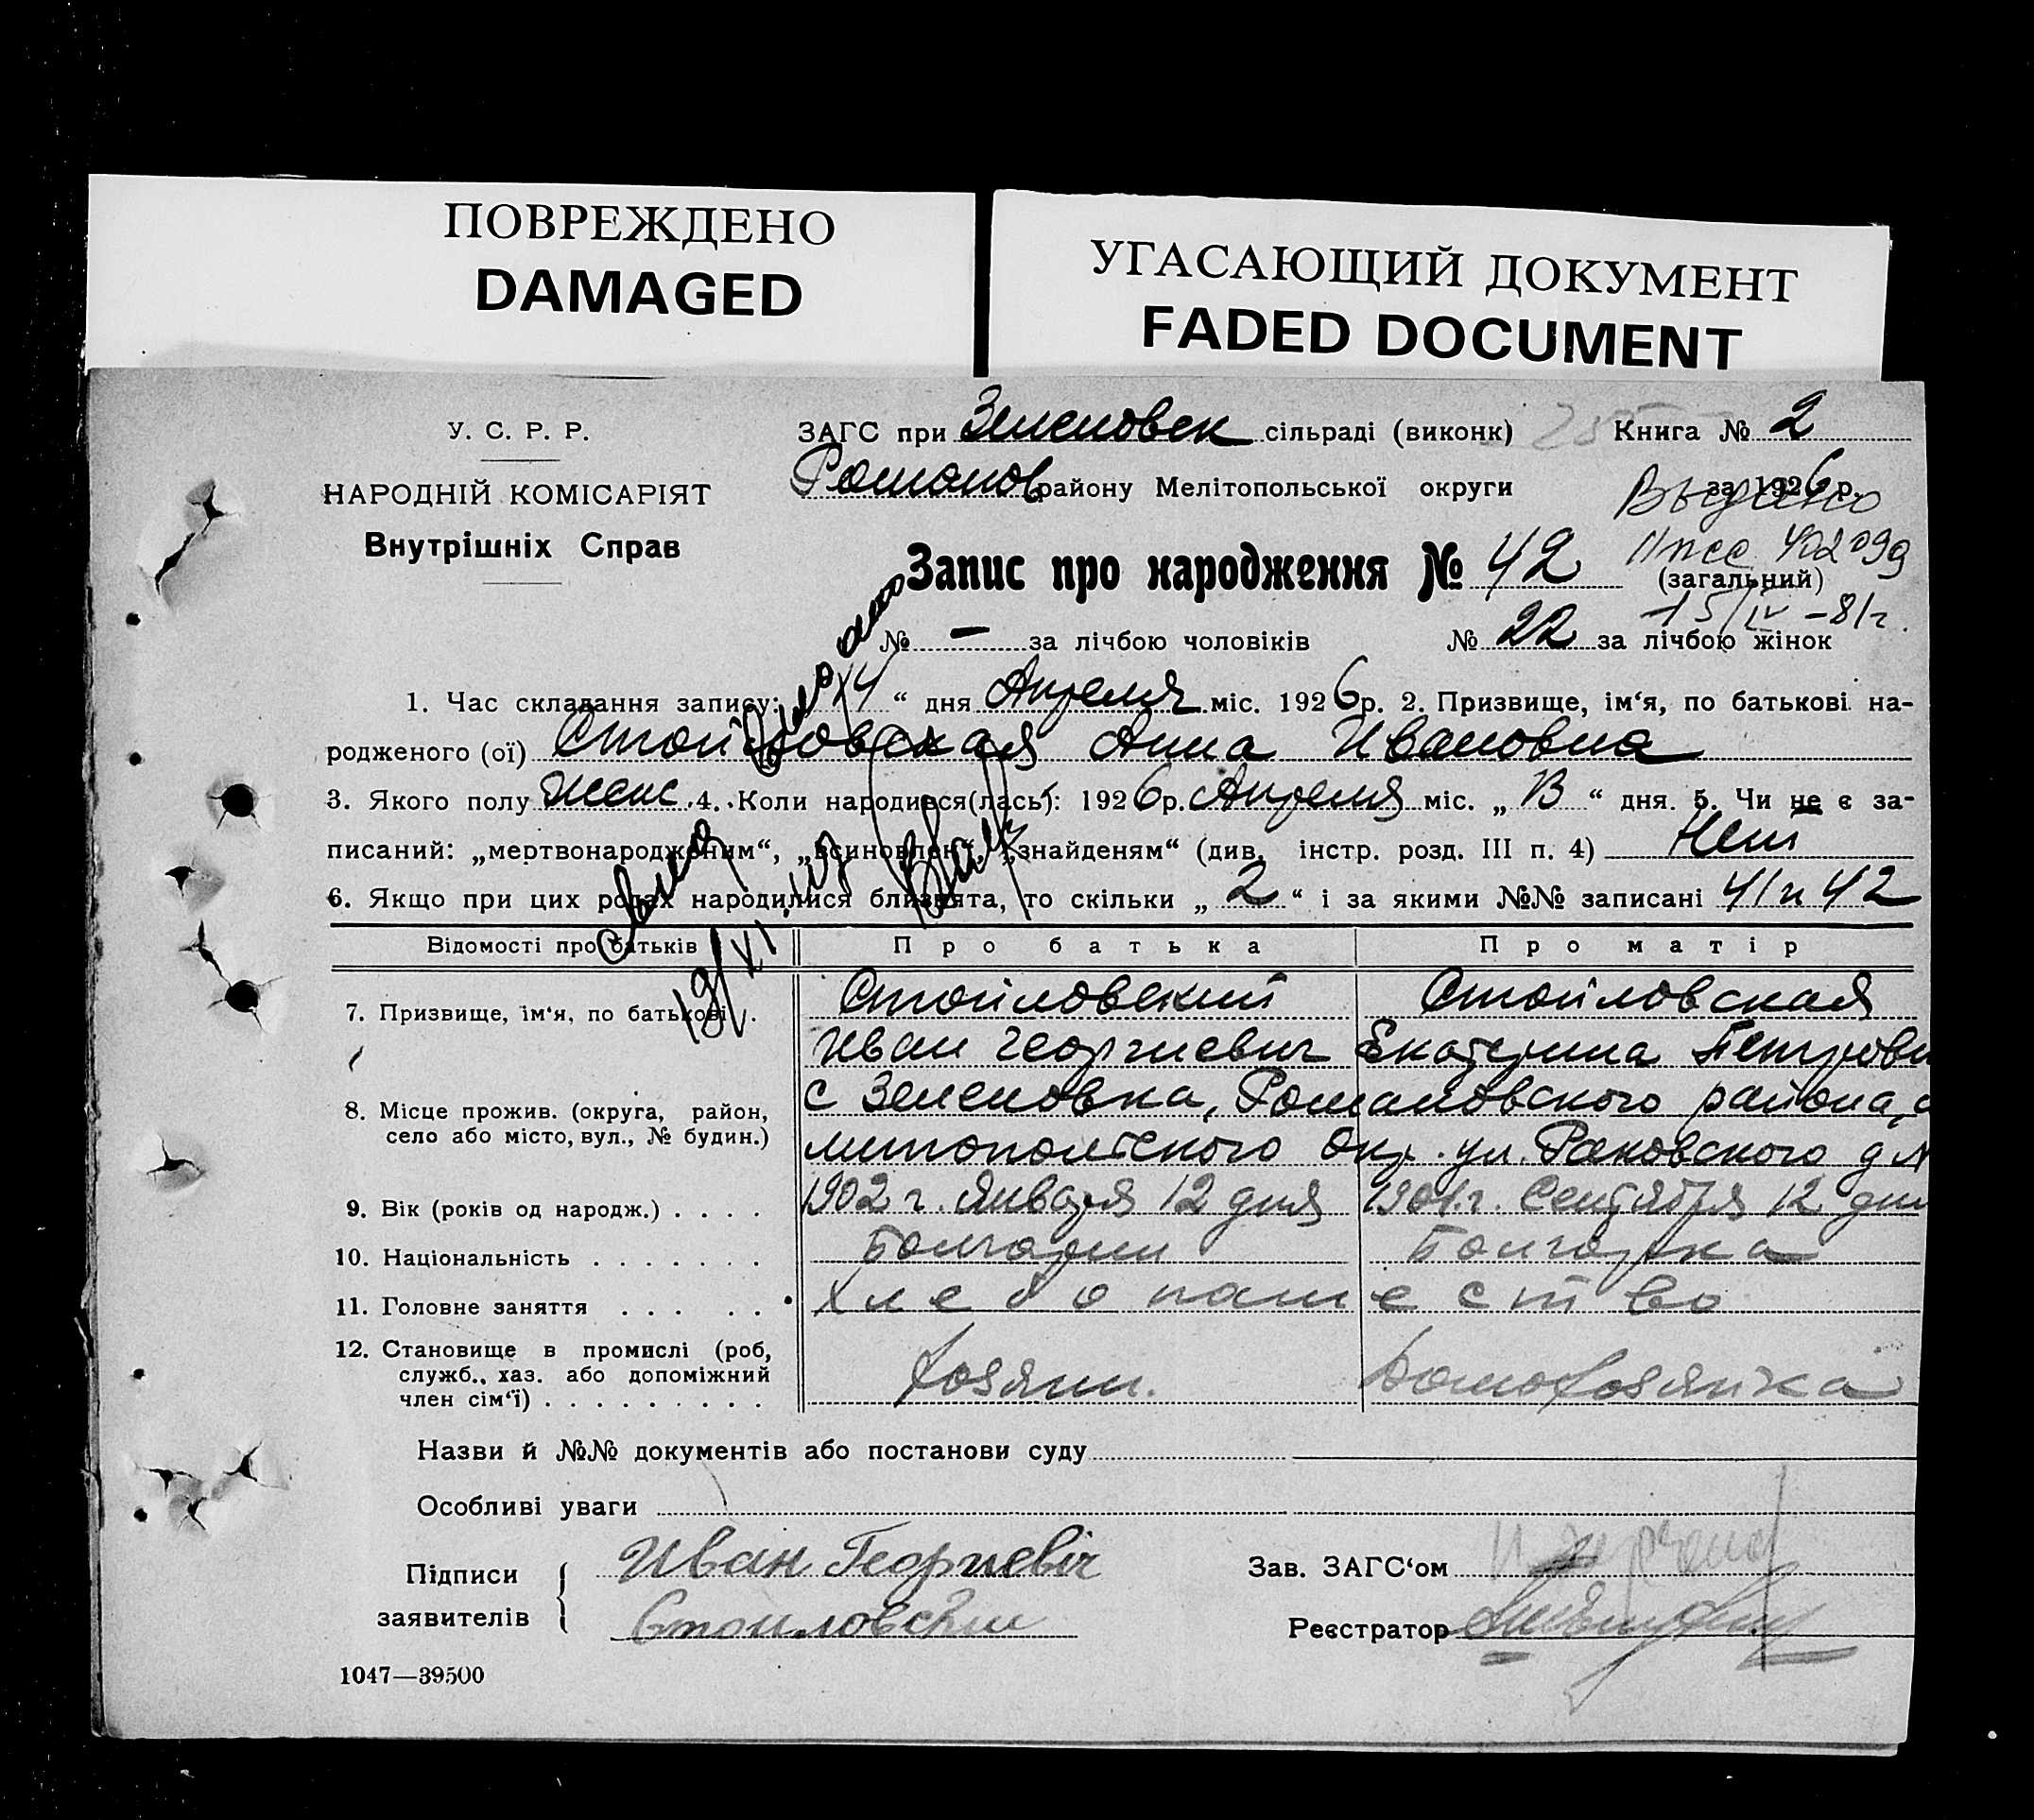 ПОВРЕЖДЕНО
DAMAGED
УГАСАЮЩИЙ ДОКУМЕНТ
FADED DOCUMENT
У. С. Р. Р.
НАРОДНІЙ КОМІСАРІЯТ
Внутрішніх Справ
ЗАГС при Зеленовск сільраді (виконк) Книга № 2
Романов району Мелітопольської округи за 1926 р.
Выдано
Запис про народження № 42 (загальний)
15/IV-81г.
№ – за лічбою чоловіків № 22 за лічбою жінок
1. Час складання запису: 14 “ дня Апреля міс. 1926 р. 2. Призвище, ім‘я, по батькові на-
родженого (ої) Стойловская Анна Ивановна
3. Якого полу женс. 4. Коли народився(лась): 1926 р. Апреля міс. „ 13 “ дня. 5. Чи не є за-
писаний: „мертвонародженим“, „всиновлен“, „знайденям“ (див. інстр. розд. III п. 4) Нет
6. Якщо при цих родах народилися близнята, то скільки „ 2 “ і за якими №№ записані 41 и 42
19/XI
Відомості про батьків Про батька Про матір
7. Призвище, ім‘я, по батькові . Стойловский Стойловская
Иван Георгиевич Екатерина Петровн
8. Місце прожив. (округа, район, село або місто, вул., № будин.) с Зеленовка, Романовского района,
литопольского окр. ул. Раковского д N
9. Вік (років од народж.) . . . . 1902 г. Января 12 дня 1901 г. Сентября 12 дня
10. Національність . . . . . . . Болгарин Болгарка
11. Головне заняття . . . . . Хлебопашество
12. Становище в промислі (роб, служб., хаз. або допоміжний член сім‘ї) . . . . . . . . . Хозяин. Домохозяйка
Назви й №№ документів або постанови суду
Особливі уваги
Підписи заявителів Иван Георгиевіч
Стоиловский
Зав. ЗАГС‘ом
Реєстратор
1047—39500